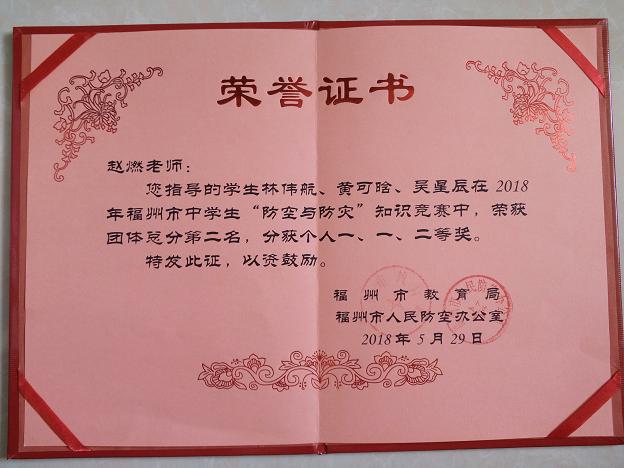 荣誉证书
赵燃老师：
您指导的学生林伟航、黄可晗、吴星辰在 2018
年福州市中学生“防空与防灾”知识竞赛中，荣获
团体总分第二名，分获个人一、一、二等奖。
特发此证，以资鼓励。
福州市教育局
福州市人民防空办公室
2018年5月29日